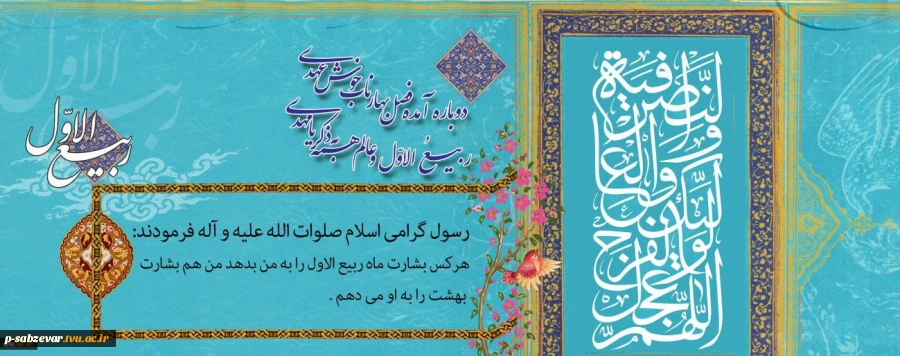 اللّهمّ عجّل لوليّك الفرج والعافية والنّصر
دوباره آمده فصل بهار ناب خوش عهدی
ربیعُ الاوّل و عالم همه به ذکر یا مهدی
ربیع الاوّل
رسول گرامی اسلام صلوات الله علیه و آله فرمودند:
هرکس بشارت ماه ربیع الاول را به من بدهد من هم بشارت
بهشت را به او می دهم .
p-sabzevar.tvu.ac.ir